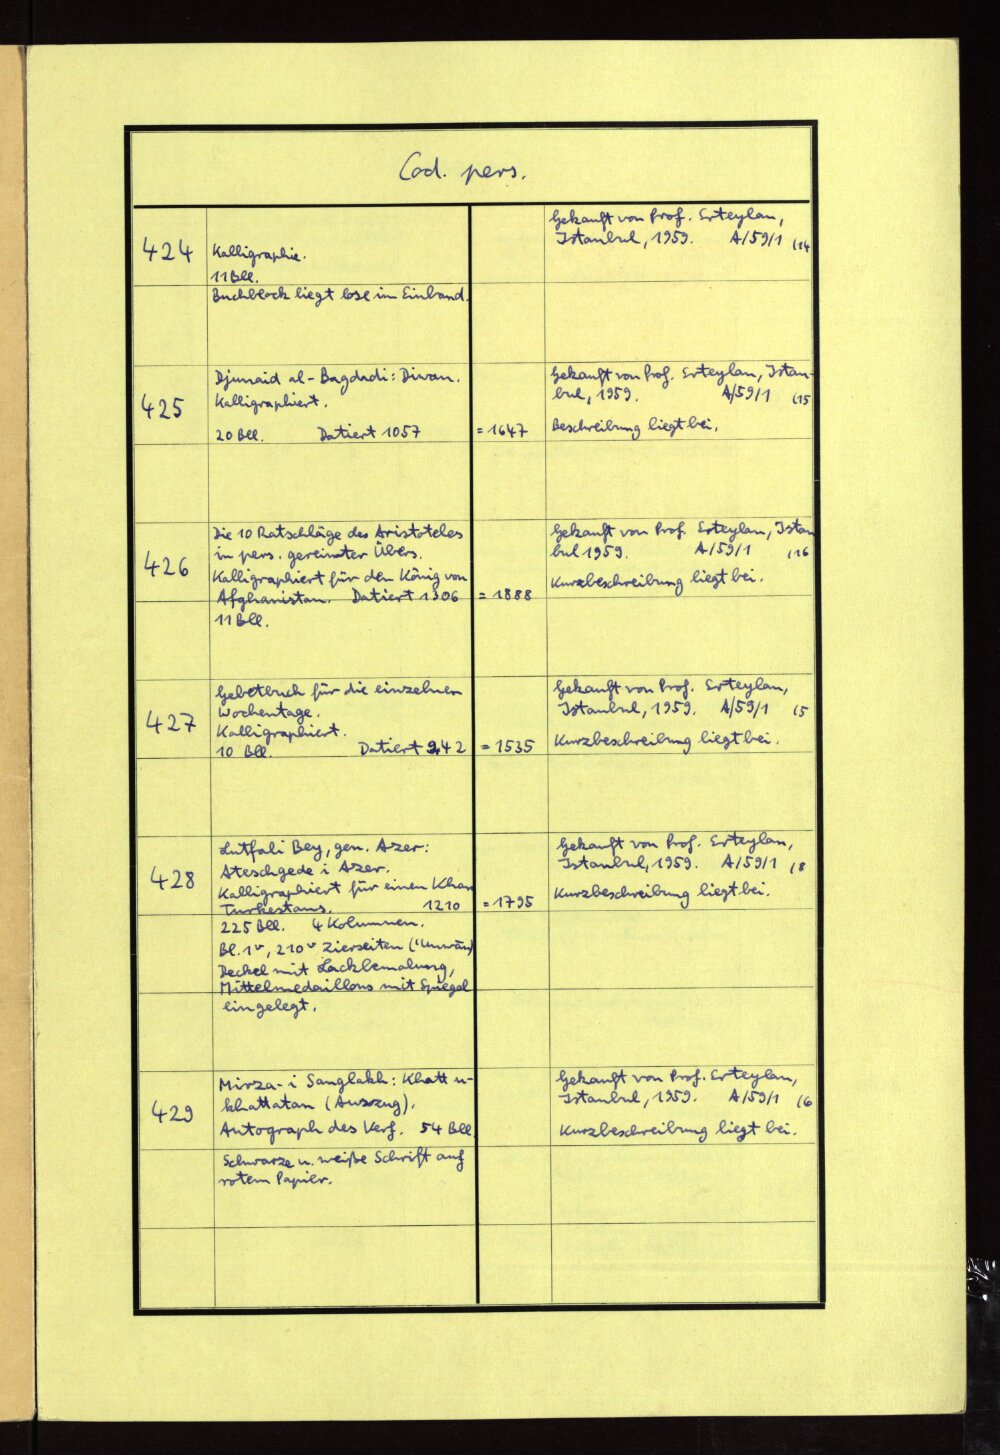 Cod. pers.
424
Kalligraphie.
11 Bll.
Buchblock liegt lose im Einband.
Gekauft von Prof. Erteylan,
Istanbul, 1959. A/59/1 (14
425
Djunaid al-Bagdadi: Diwan.
Kalligraphiert.
20 Bll. Datiert 1057 = 1647
Gekauft von Prof. Erteylan, Istan-
bul, 1959. A/59/1 (15
Beschreibung liegt bei.
426
Die 10 Ratschläge des Aristoteles
in pers. gereimter Übers.
Kalligraphiert für den König von
Afghanistan. Datiert 1306 = 1888
11 Bll.
Gekauft von Prof. Erteylan, Istan
bul 1959. A/59/1 (16
Kurzbeschreibung liegt bei.
427
Gebetbuch für die einzelnen
Wochentage.
Kalligraphiert.
10 Bll. Datiert 942 = 1535
Gekauft von Prof. Erteylan,
Istanbul, 1959. A/59/1 (5
Kurzbeschreibung liegt bei.
428
Lutfali Bey, gen. Azer:
Ateschgede i Azer.
Kalligraphiert für einen Khan
Turkestans. 1210 = 1795
225 Bll. 4 Kolumnen.
Bl. 1v, 210v Zierseiten (ʿUnwān)
Deckel mit Lackbemalung,
Mittelmedaillons mit Spiegel
eingelegt.
Gekauft von Prof. Erteylan,
Istanbul, 1959. A/59/1 (8
Kurzbeschreibung liegt bei.
429
Mirza-i Sanglakh: Khatt u-
khattatan (Auszug).
Autograph des Verf. 54 Bll.
Schwarze u. weiße Schrift auf
rotem Papier.
Gekauft von Prof. Erteylan,
Istanbul, 1959. A/59/1 (6
Kurzbeschreibung liegt bei.